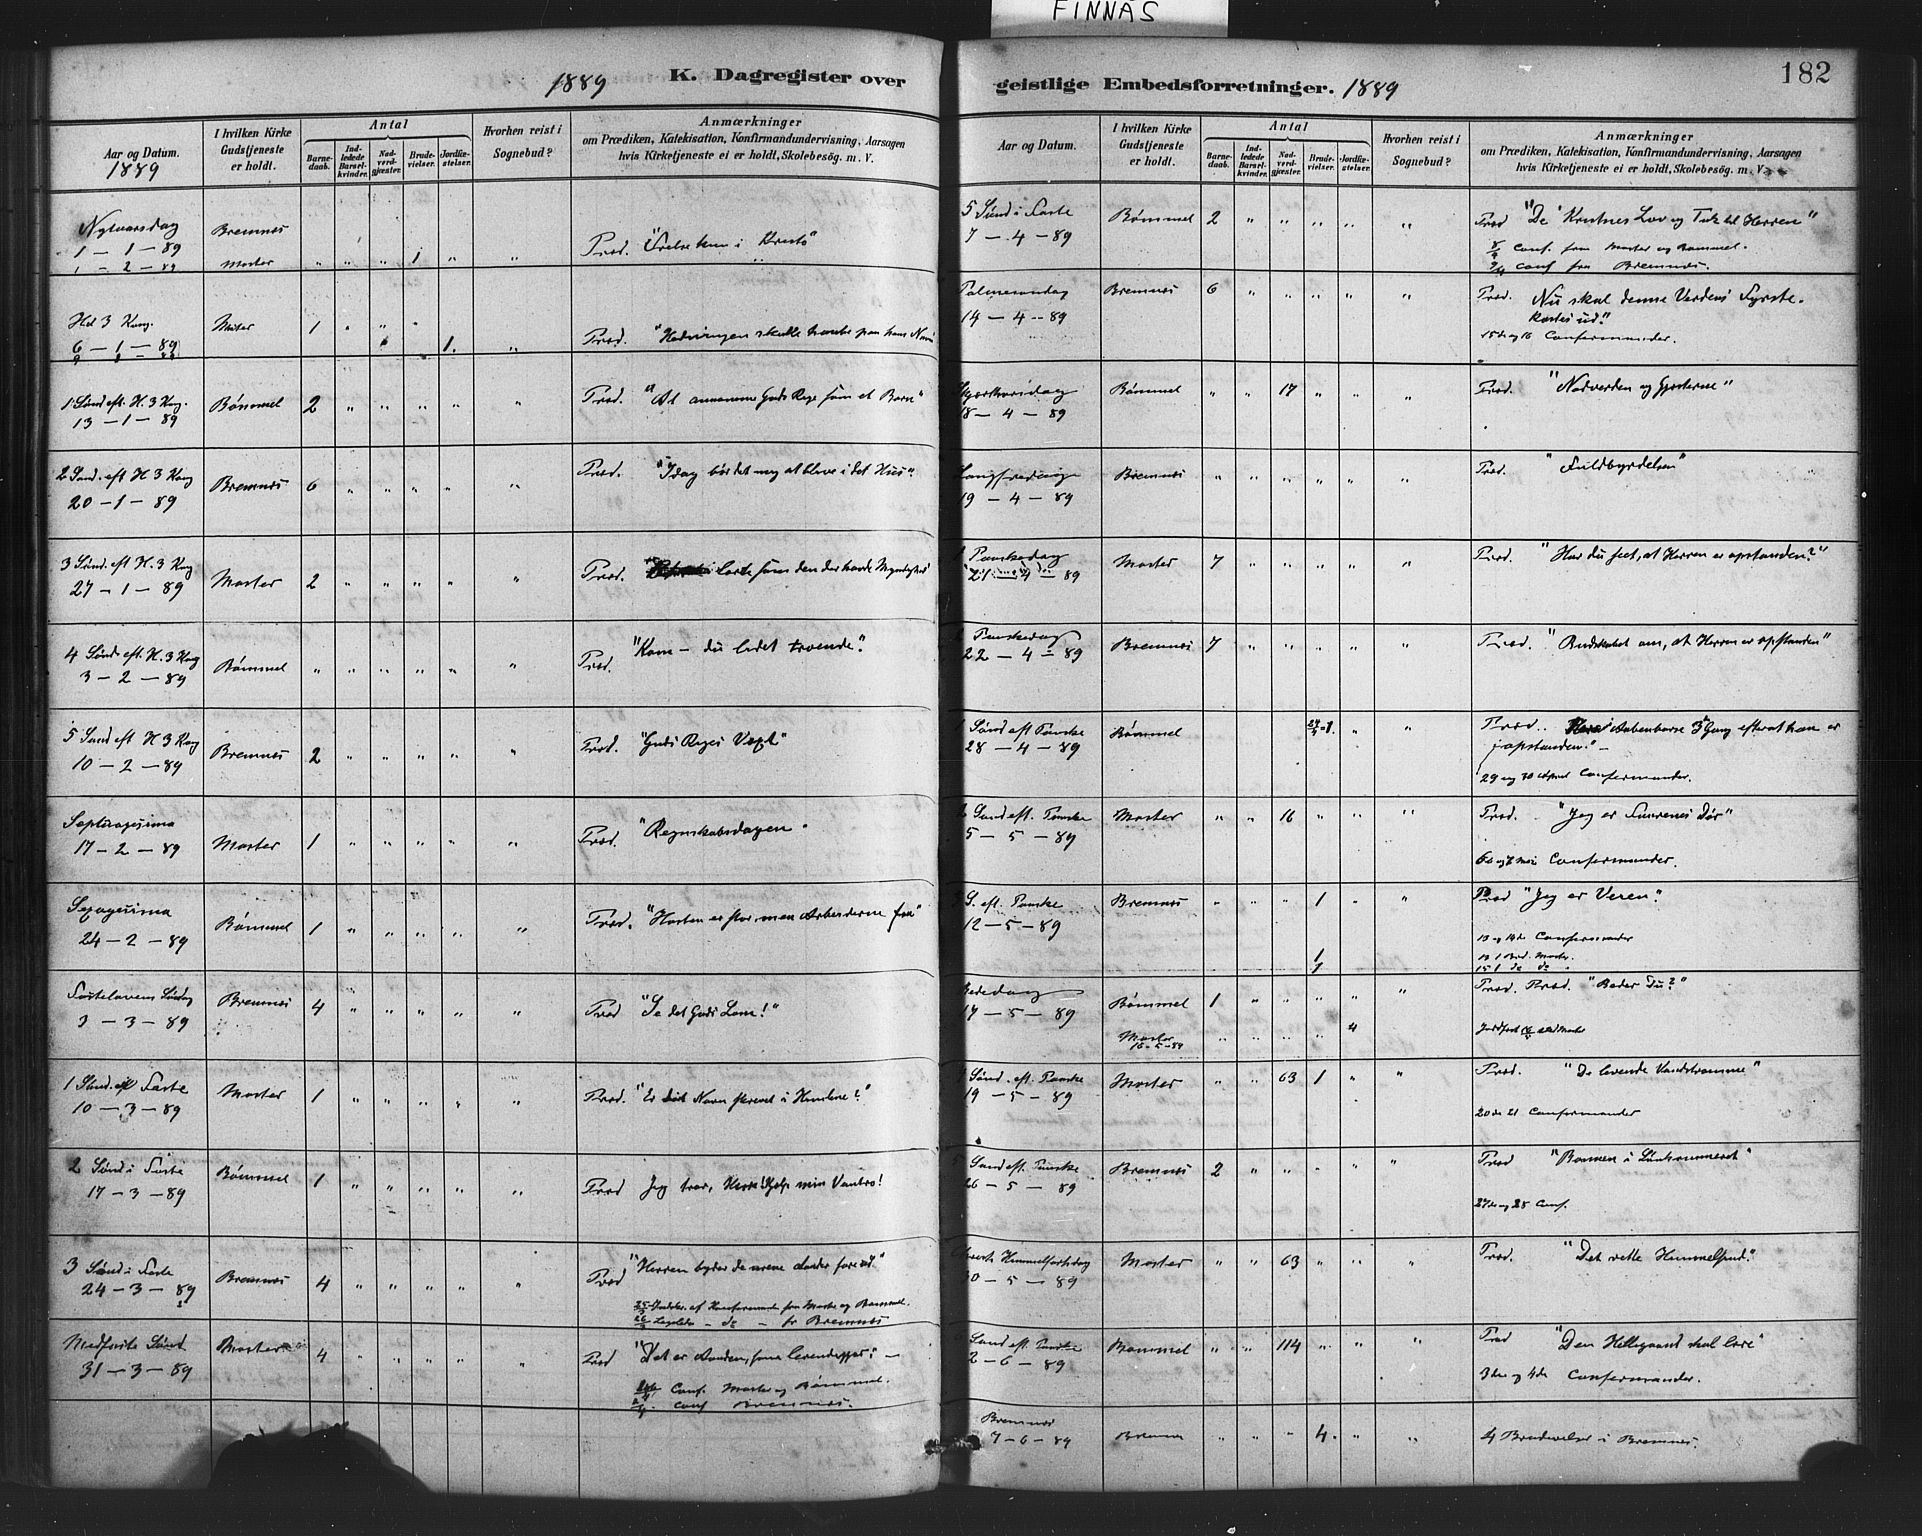 FINNÅS
1889
K. Dagregister over
Aar og Datum.
1889
I hvilken Kirke Gudstjeneste er holdt.
Antal
Barnedaab.
Indledede Barselkvinder.
Nadverdgjæster.
Brudevielser.
Jordfæstelser.
Hvorhen reist i Sognebud?
Anmærkninger
om Prædiken, Katekisation, Konfirmandundervisning, Aarsagen
hvis Kirketjeneste ei er holdt, Skolebesög. m. V.
Nytaarsdag Bremnes
1 — 1 — 89 Præd. "Frelse kun i "
1 — 2 — 89 Moster " " " 1 " "
Hel 3 Kong. Moster 1 " "
6 — 1 — 89 1. " Præd. "Hedningen skulle haabe paa hans Navn
1 Sønd eft. H. 3 Kong. Bømmel 2 " " " " " Præd. "At annamme Guds Rige som et Barn"
13 — 1 — 89
2 Sønd. eft H 3 Kong Bremnes 6 " " " " " Præd. "Idag bør det mig at blive i dit Hus".
20 — 1 — 89
3 Sønd. eft H. 3 Kong Moster 2 " " " " " Præd. lærte som den der havde Myndighed
27 — 1 — 89
4 Sønd eft. H. 3 Kong Bømmel " " " " " " Præd. "Kom — du lidet troende".
3 — 2 — 89
5 Sønd eft H 3 Kong Bremnes 2 " " " " " Præd. "Guds Riges Vext"
10 — 2 — 89
Septuagesima Moster 1 " " " " " Præd. "Regnskabsdagen".
17 — 2 — 89
Sexagesima Bømmel 1 " " " " " Præd. "Høsten er stor, men Arbeiderne faa"
24 — 2 — 89
Fastelavens Søndag Bremnes 4 " " " " " Præd "Se det Guds Lam!"
3 — 3 — 89
1 Sønd. i Faste Moster 1 " " " " " Præd. "Er dit Navn skrevet i Himlene?"
10 — 3 — 89
2 Sønd i Faste Bømmel 1 " " " " " Præd Jeg tror, Herre! hjelp min Vantro!
17 — 3 — 89
3 Sønd i Faste Bremnes 4 " " " " " Præd "Herren byder de urene Aander fare ud."
24 — 3 — 89
25/3 af Konfirmander fra Moster og Bømmel.
26/3 — do — fr Bremnes
Midfaste Sønd Moster 4 " " " " " Præd "Det er Aanden, som levendegjør; —
31 — 3 — 89
Conf. Moster og Bømmel.
Conf Bremnes.
geistlige Embedsforretninger. 1889
182
Aar og Datum.
I hvilken Kirke Gudstjeneste er holdt.
Antal
Barnedaab.
Indledede Barselkvinder.
Nadverdgjæster.
Brudevielser.
Jordfæstelser.
Hvorhen reist i Sognebud?
Anmærkninger
om Prædiken, Katekisation, Konfirmandundervisning, Aarsagen
hvis Kirketjeneste ei er holdt, Skolebesög. m. V.
5 Sønd i Faste Bømmel 2 " " " " " Præd "De Kristnes Lov og Tak til Herren"
7 — 4 — 89
8/4 conf. fra Moster og Bømmel.
9/4 conf fra Bremnes.
Palmesøndag Bremnes 6 " " " " " Præd. Nu skal denne Verdens Fyrste
14 — 4 — 89 kastes ud."
15de og 16 Confirmander.
Skjærthorsdag Bømmel " " 17 " " " Præd. "Nadverden og Gjesterne"
18 — 4 — 89
Langfredag Bremnes " " " " " " Præd. "Fuldbyrdelsen"
19 — 4 — 89
1 Paaskedag Moster 7 " " " " " Præd. "Har du seet, at Herren er opstanden?"
21 — 4 — 89
2 Paaskedag Bremnes 7 " " " " " Præd. "Budskabet om, at Herren er opstanden"
22 — 4 — 89
1 Sønd eft Paaske Bømmel 24/4-1. " " Præd. Aabenbares 3 Gang efterat han er
28 — 4 — 89 opstanden." —
29 og 30 April Confirmander.
2 Sønd eft. Paaske Moster " " 16 " " " Præd. "Jeg er Faarenes Dør"
5 — 5 — 89
6 og 7 Mai Confirmander.
3 S. eft. Paaske Bremnes " " " 1 " " Præd "Jeg er Veien".
12 — 5 — 89
13 og 14de Confirmander
1 13 1 Brd. Moster.
1 15 1 do do
Bededag Bømmel 1 " " " " " Præd. Præd. "Beder Du?"
17 — 5 — 89
Moster " " " " 4 Jordfæst
16-5-89
4 Sønd. eft. Paaske Moster " " 63 1 " " Præd. "De levende Vandstrømme"
19 — 5 — 89
20 de 21 Confirmander
5 Sønd eft. Paaske Bremnes 2 " " " " " Præd "Bønnen i Lønkammeret"
26 — 5 — 89
27de og 28 Conf.
Christi Himmelfartsdag Moster " " 63 " " " Præd. "Det rette Himmelsyn."
30 — 5 — 89
6 Sønd eft. Paaske Bømmel " " 114 " " " Præd "Den Helligaand skal lære"
2 — 6 — 89
3die og 4de Confirmander.
Bremnes
7 — 6 — 89 Bremnes " " " 4. " " 4 Brudevielser i Bremnes.